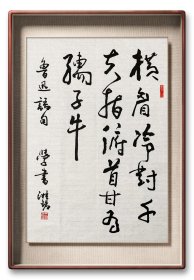 横眉冷对千
夫指俯首甘为
孺子牛
鲁迅詩句
學書